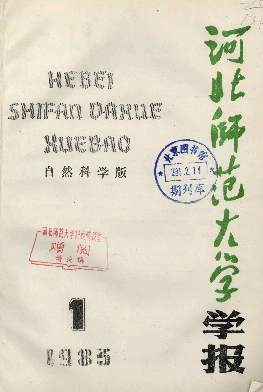 HEBEI
SHIFAN DAXUE
XUEBAO
自然科学版
河北师范大学
学报
北京图书馆
期刊库
1
1985